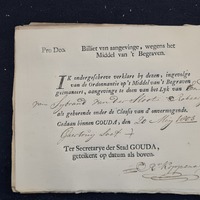 Pro Deo.
Billiet van aangevinge, wegens het
Middel van 't Begraven.
IK ondergeschreve verklare by desen, ingevolge
van de Ordonnantie op 't Middel van 't Begraven
geëmaneert, aangevinge te doen van het Lyk van
van Sybrand van der
als gehorende onder de Classis van d' onvermogende.
Gedaan binnen GOUDA, den 20 May
Ter Secretarye der Stad GOUDA,
geteikent op datum als boven.